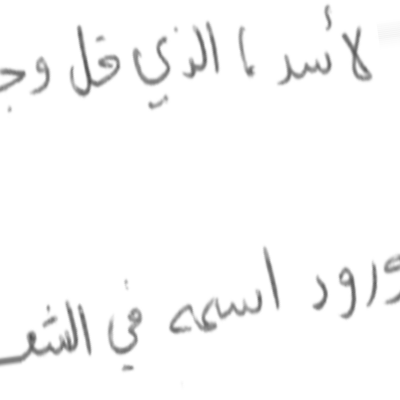 لأسد ما الذي قل وج
ورود اسمه في الشعـ